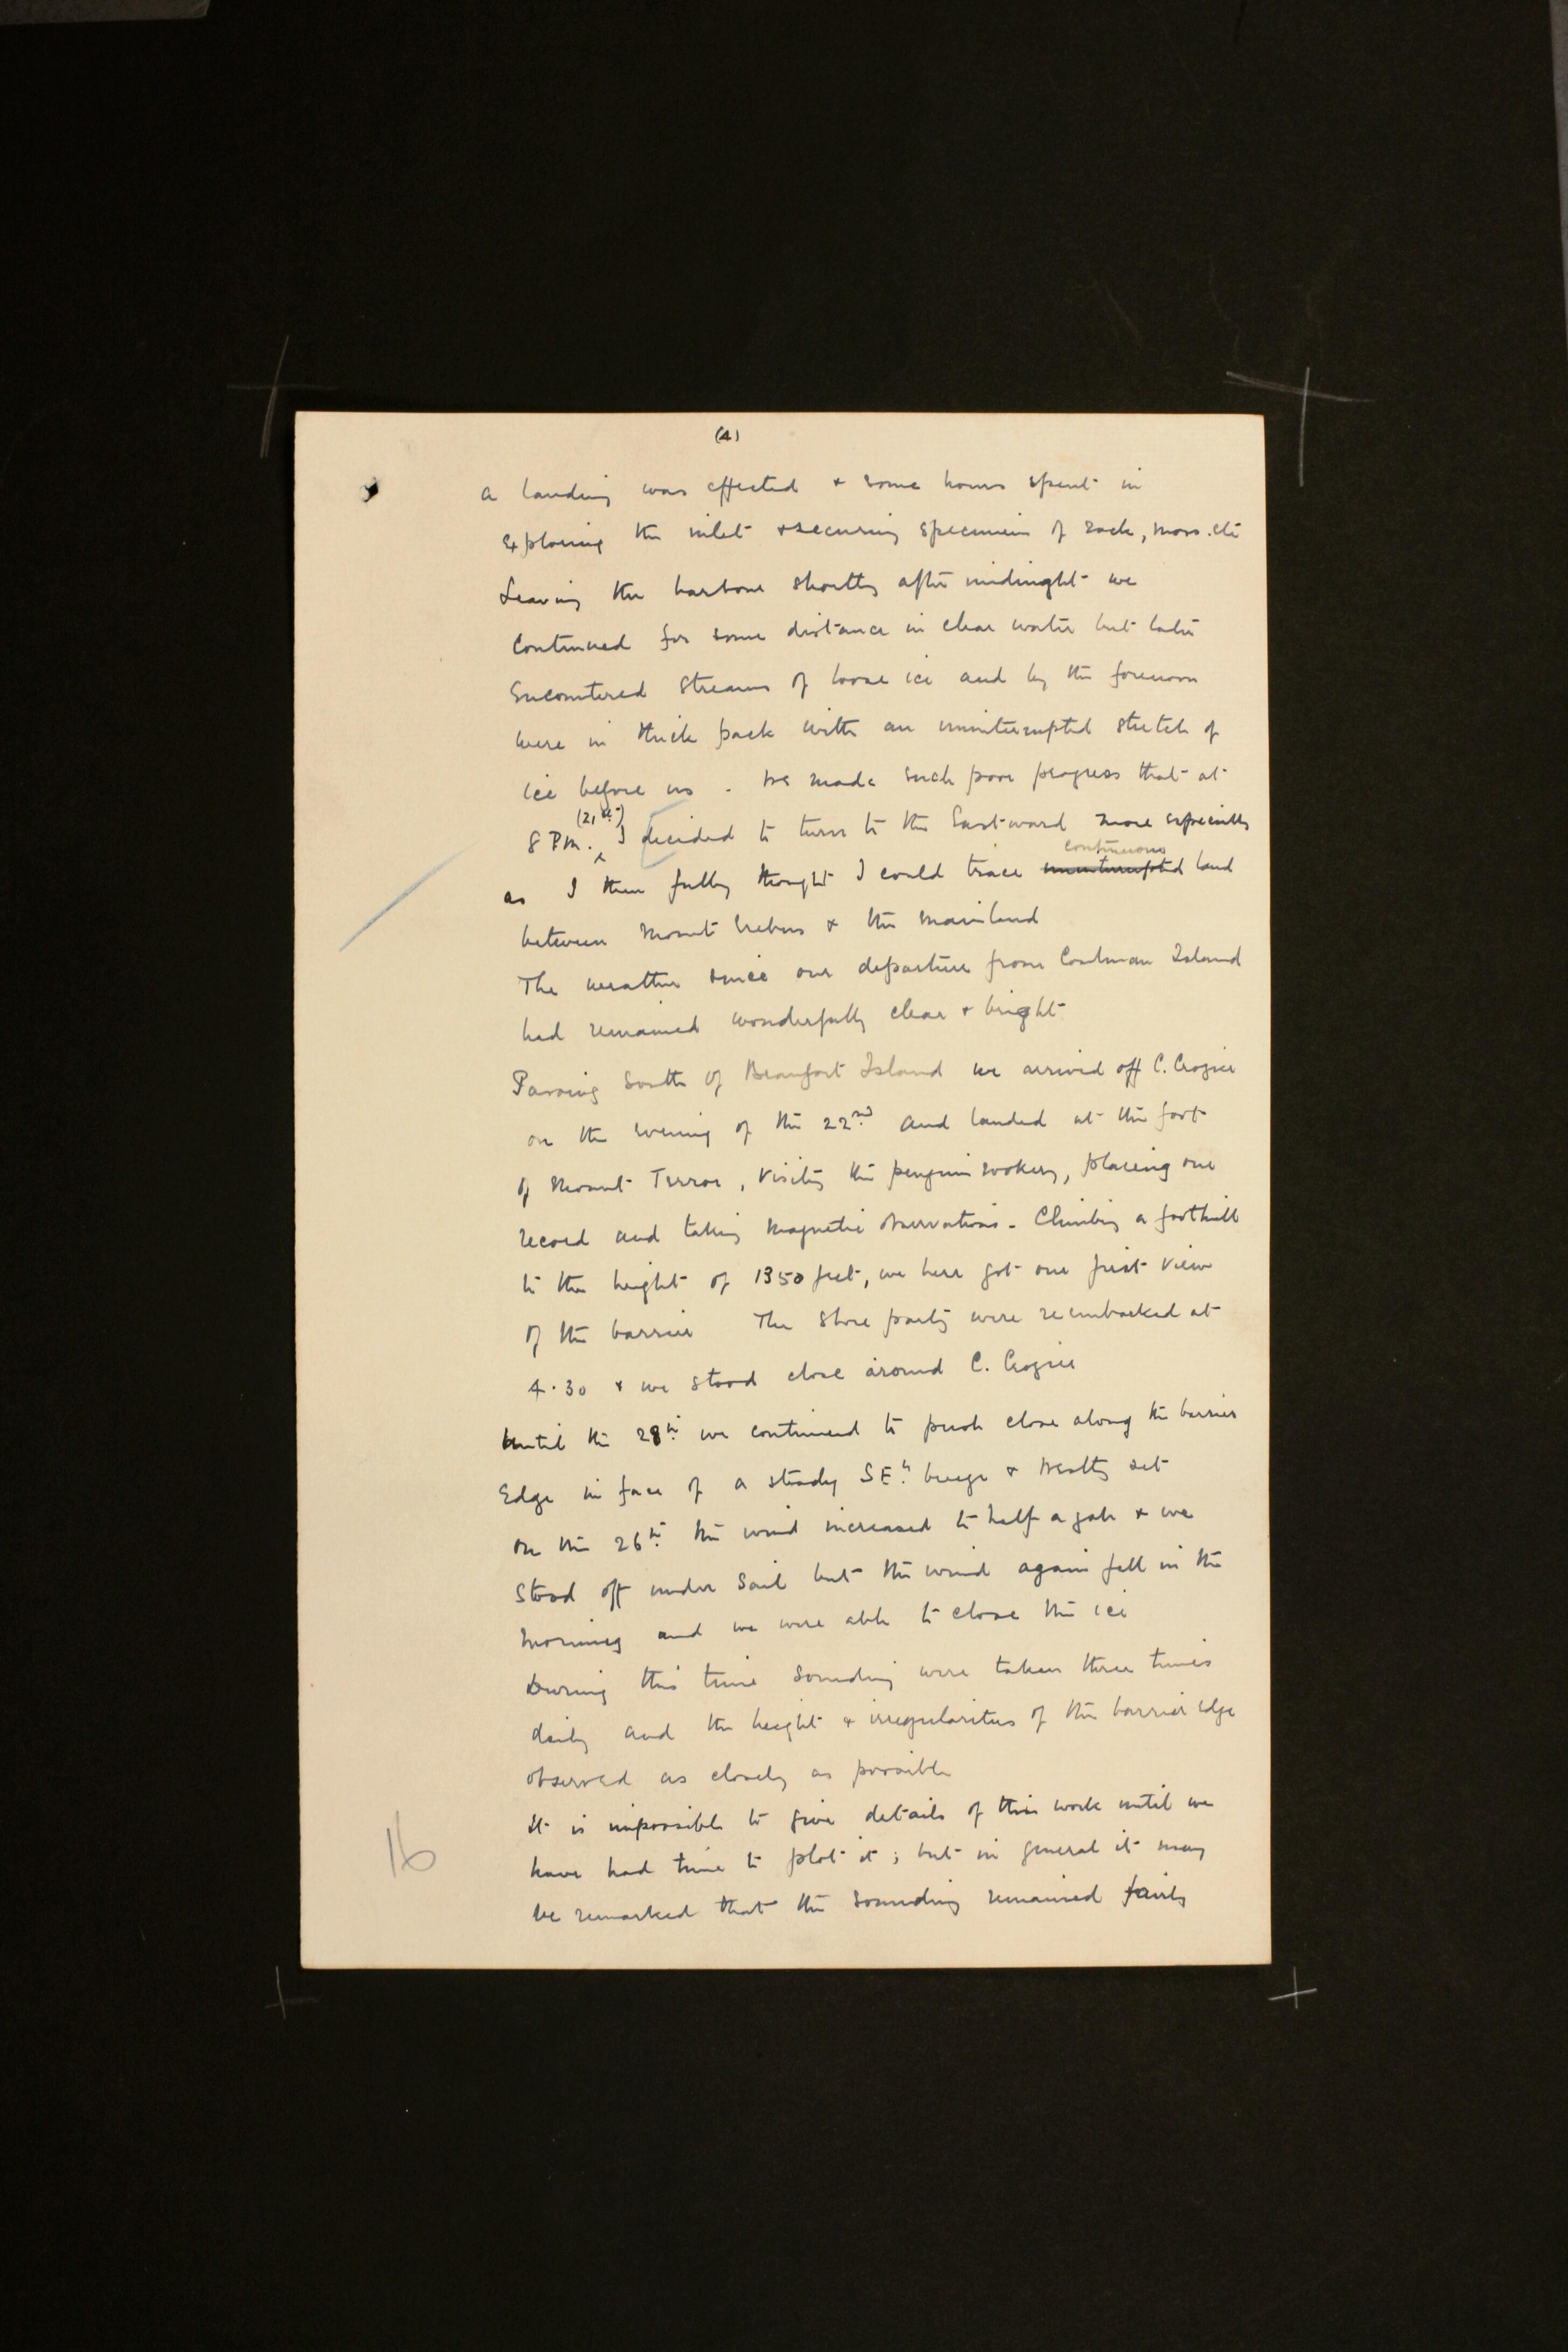 (4)
a landing was effected & some hours spent in
exploring the inlet & securing specimens of rock, moss. etc
Leaving the harbour shortly after midnight we
continued for some distance in clear water but later
encountered streams of loose ice and by the forenoon
were in thick pack with an uninterrupted stretch of
ice before us. We made such poor progress that at
(21st)
8 P.M. I decided to turn to the Eastward more especially
continuous
as I then fully thought I could trace uninterrupted land
between Mount Erebus & the mainland
The weather since our departure from Coulman Island
had remained wonderfully clear & bright
Passing South of Beaufort Island we arrived off C. Crozier
on the evening of the 22nd and landed at the foot
of Mount Terror, visiting the penguin rookery, placing our
record and taking magnetic observations. Climbing a foothill
to the height of 1350 feet, we here got our first view
of the barrier The shore party were reembarked at
4.30 & we stood close around C. Crozier
Until the 28th we continued to push close along the barrier
Edge in face of a steady SE.ly breeze & westly set
On the 26th the wind increased to half a gale & we
stood off under sail but the wind again fell in the
morning and we were able to close the ice
During this time sounding were taken three times
daily and the height & irregularities of the barrier edge
observed as closely as possible
It is impossible to give details of this work until we
have had time to plot it; but in general it may
be remarked that the sounding remained fairly
16